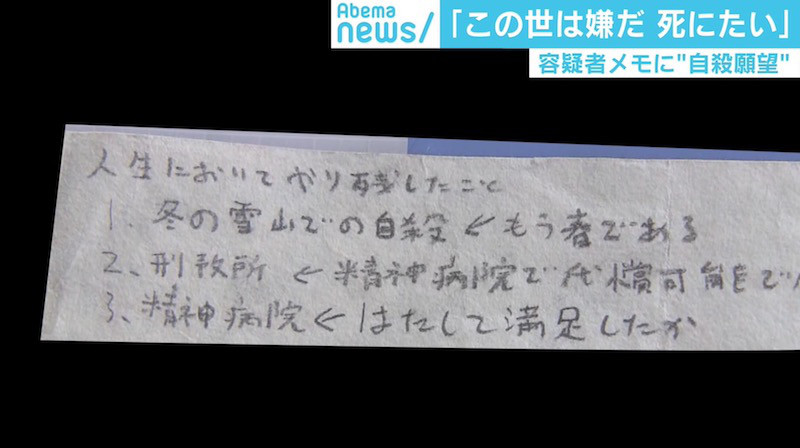 Abema
news/
「この世は嫌だ 死にたい」
容疑者メモに"自殺願望"
人生においてやり残したこと
1、冬の雪山での自殺 ← もう春である
2、刑務所 ← 精神病院で代償可能で
3、精神病院 ← はたして満足したか